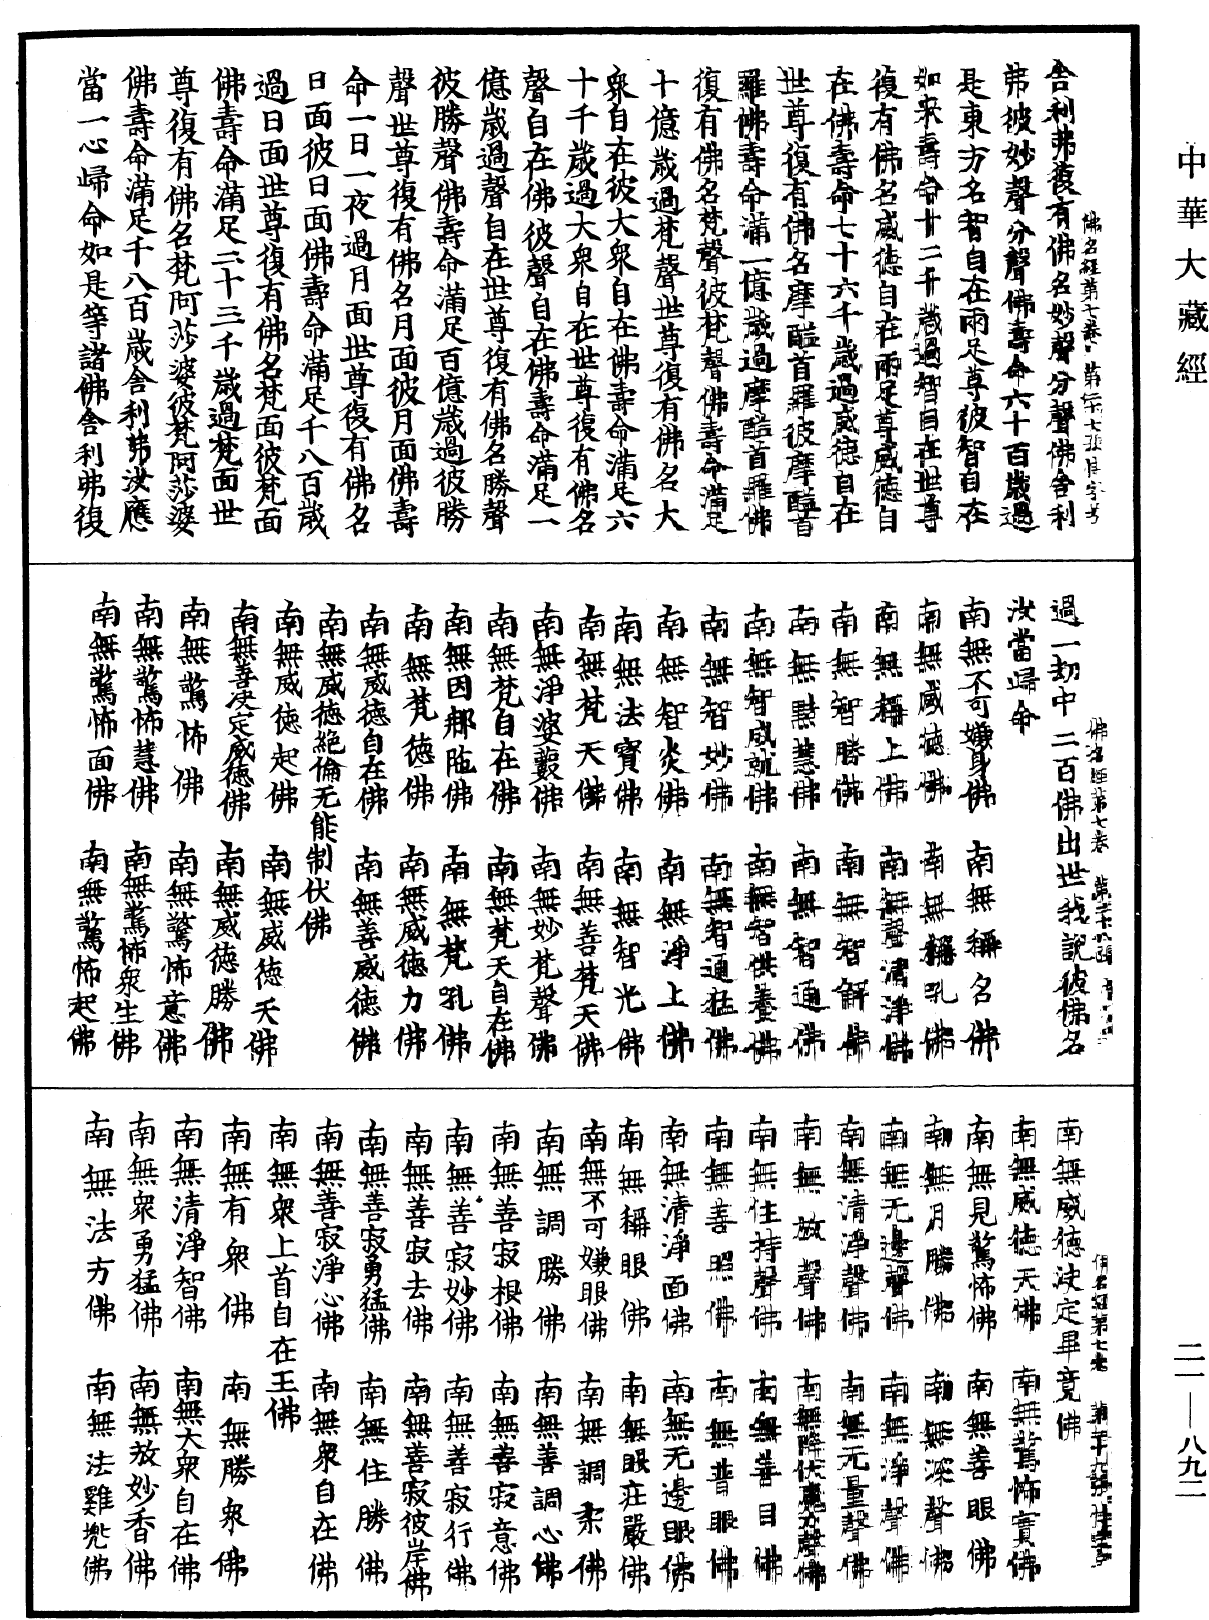 中華大藏經
舍利弗復有佛名妙聲分聲佛舍利
弗彼妙聲分聲佛壽命六十百歲過
是東方名智自在兩足尊彼智自在
如來壽命十二千歲過智自在世尊
復有佛名威德自在兩足尊威德自
在佛壽命七十六千歲過威德自在
世尊復有佛名摩醯首羅彼摩醯首
羅佛壽命滿一億歲過摩醯首羅佛
復有佛名梵聲彼梵聲佛壽命滿足
十億歲過梵聲世尊復有佛名大
衆自在彼大衆自在佛壽命滿足六
十千歲過大衆自在世尊復有佛名
聲自在佛彼聲自在佛壽命滿足一
億歲過聲自在世尊復有佛名勝聲
彼勝聲佛壽命滿足百億歲過彼勝
聲世尊復有佛名月面彼月面佛壽
命一日一夜過月面世尊復有佛名
日面彼日面佛壽命滿足千八百歲
過日面世尊復有佛名梵面彼梵面
佛壽命滿足二十三千歲過梵面世
尊復有佛名梵阿莎婆彼梵阿莎婆
佛壽命滿足千八百歲舍利弗汝應
當一心歸命如是等諸佛舍利弗復
佛名經第七卷
過一劫中二百佛出世我說彼佛名
汝當歸命
南無不可嫌身佛 南無稱名佛
南無威德佛 南無稱吼佛
南無稱上佛 南無聲清淨佛
南無智勝佛 南無智解佛
南無黠慧佛 南無智通佛
南無智成就佛 南無智供養佛
南無智妙佛 南無智通猛佛
南無智炎佛 南無淨上佛
南無法寶佛 南無智光佛
南無梵天佛 南無善梵天佛
南無淨婆藪佛 南無妙梵聲佛
南無梵自在佛 南無梵天自在佛
南無因那陁佛 南無梵吼佛
南無梵德佛 南無威德力佛
南無威德自在佛 南無善威德佛
南無威德絕倫无能制伏佛
南無威德起佛 南無威德天佛
南無善决定威德佛 南無威德勝佛
南無驚怖佛 南無驚怖意佛
南無驚怖慧佛 南無驚怖衆生佛
南無驚怖面佛 南無驚怖起佛
佛名經第七卷
南無威德决定畢竟佛
南無威德天佛 南無驚怖實佛
南無見驚怖佛 南無善眼佛
南無月勝佛 南無深聲佛
南無无邊聲佛 南無淨聲佛
南無清淨聲佛 南無无量聲佛
南無放聲佛 南無降伏魔力聲佛
南無住持聲佛 南無善目佛
南無善照佛 南無普眼佛
南無清淨面佛 南無无邊眼佛
南無稱眼佛 南無眼莊嚴佛
南無不可嫌眼佛 南無調柔佛
南無調勝佛 南無善調心佛
南無善寂根佛 南無善寂意佛
南無善寂妙佛 南無善寂行佛
南無善寂去佛 南無善寂彼岸佛
南無善寂勇猛佛 南無住勝佛
南無善寂淨心佛 南無衆自在佛
南無衆上首自在王佛
南無有衆佛 南無勝衆佛
南無清淨智佛 南無大衆自在佛
南無衆勇猛佛 南無放妙香佛
南無法方佛 南無法雞兜佛
佛名經第七卷
二一—八九二